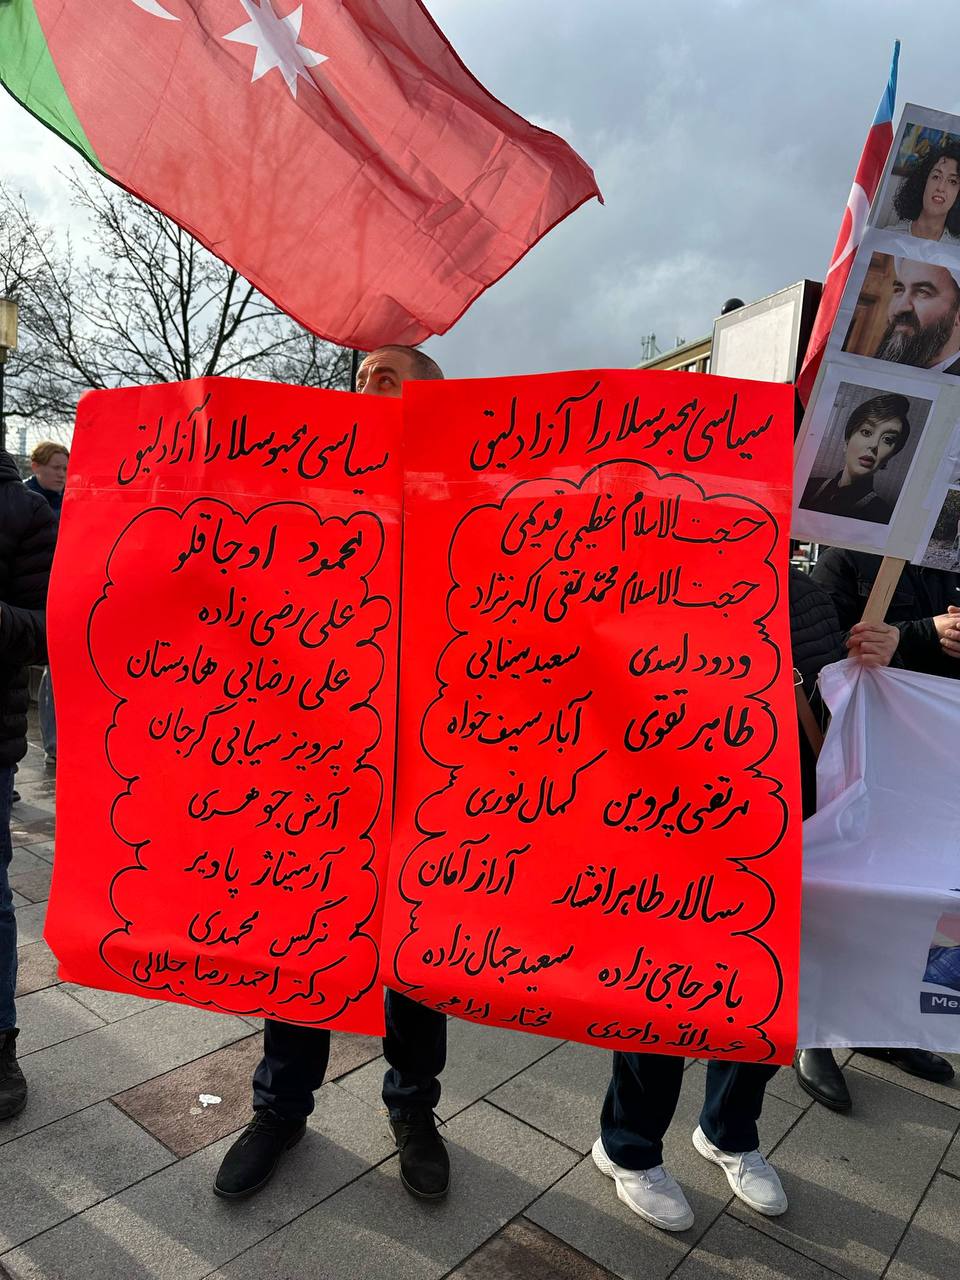 سیاسی محبوسلارا آزادلیق
محمود اوجاقلو
علی رضی زاده
علی رضایی هادستان
پرویز سیابی گرجان
آرش جوهری
آرسیتاژ پادیر
نرگس محمدی
دکتر احمد رضا جلالی
سیاسی محبوسلارا آزادلیق
حجت الاسلام عظیمی قدیمی
حجت الاسلام محمد تقی اکبرنژاد
ودود اسدی سعید مینایی
طاهر نقوی آباز سیف خواه
مرتضی پروین کمال نوری
سالار طاهر افشار آراز آمان
باقر حاجی زاده سعید جمال زاده
عبدالله واحدی مختار ابراهیمی
Me